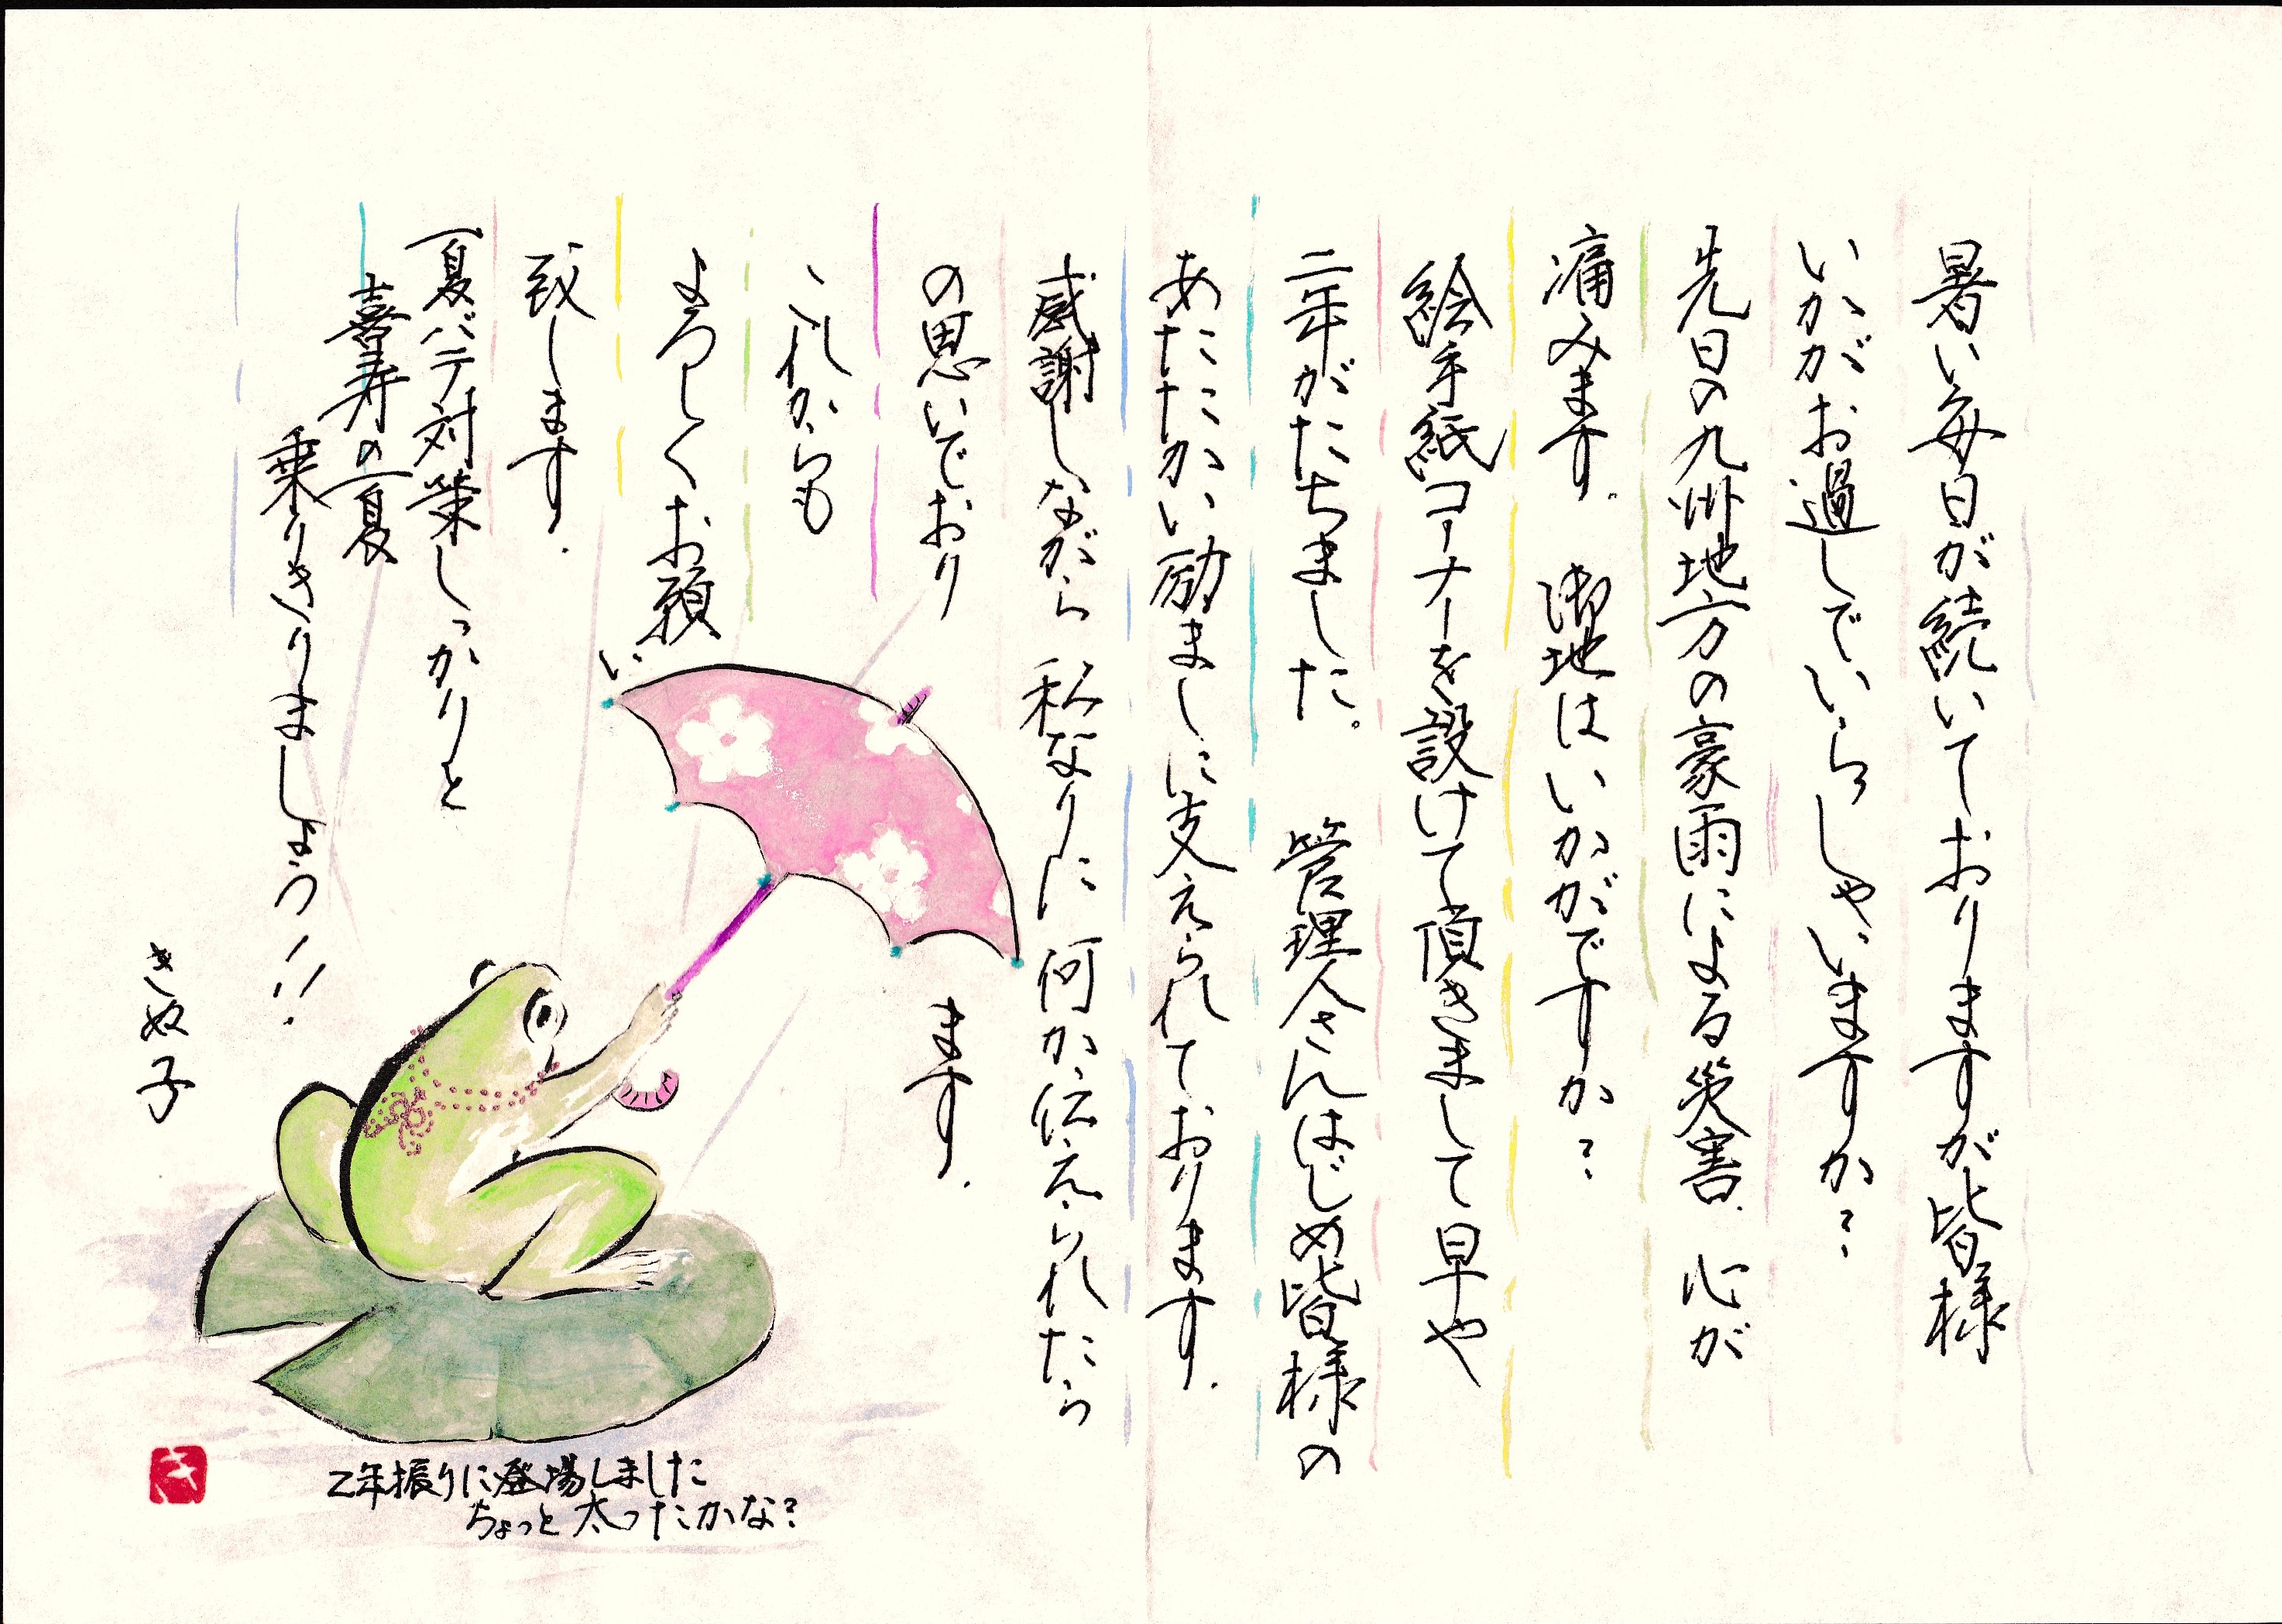 暑い毎日が続いておりますが皆様
いかがお過しでいらっしゃいますか?
先日の九州地方の豪雨による災害、心が
痛みます。 御地はいかがですか?
絵手紙コーナーを設けて頂きまして早や
二年がたちました。 管理人さんはじめ皆様の
あたたかい励ましに支えられております。
感謝しながら 私なりに何か伝えられたら
の思いでおり ます。
これからも
よろしくお願い
致します。
夏バテ対策しっかりと
喜寿の夏
乗りきりましょう!!
きぬ子
2年振りに登場しました
ちょっと太ったかな?
き